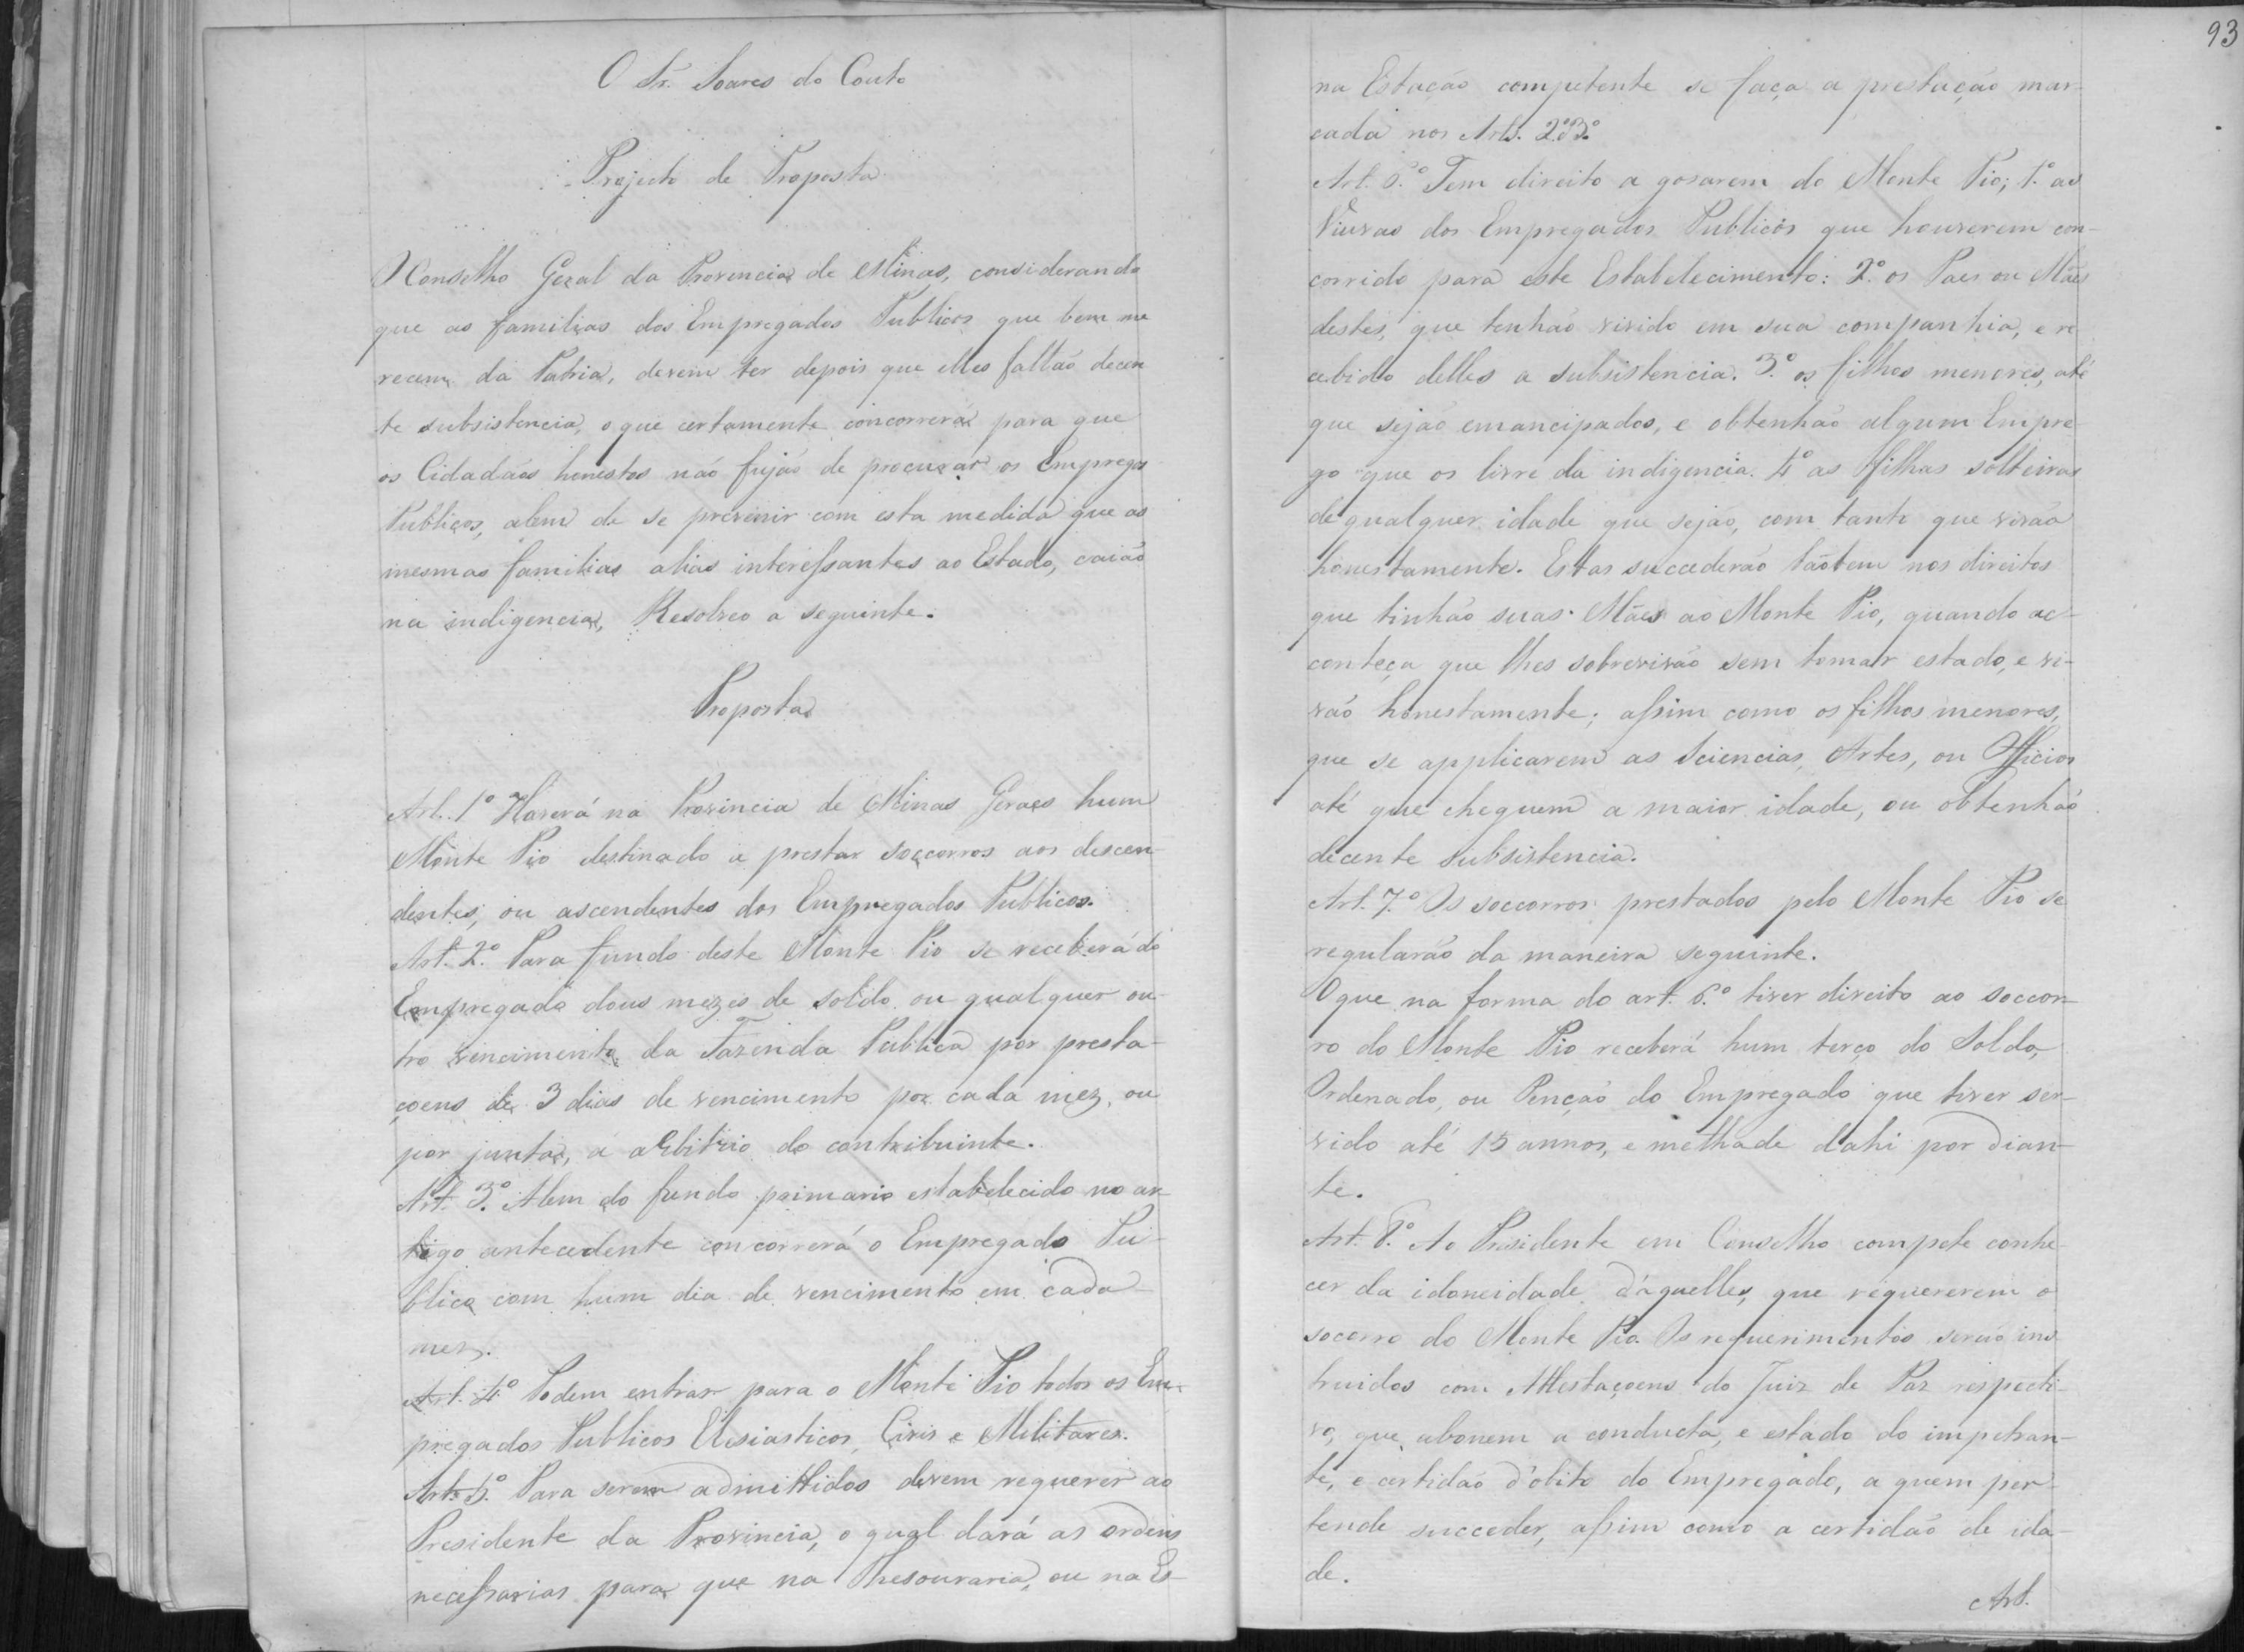 O Sr. Soares do Couto
Projecto de Proposta
O Conselho Geral da Provencia de Minas, considerando
que as familias dos Empregados Publicos que bem me
recem da Patria, devem ter depois que elles faltão decen
te subsistencia, o que certamente concorrerá para que
os Cidadãos honestos não fujão de procurar os Empregos
Publicos, alem de se prevenir com esta medida que as
mesmas familias alias interessantes ao Estado, caião
na indigencia, Resolveo a seguinte.
Proposta
Art. 1º Haverá na Provincia de Minas Geraes hum
Monte Pio destinado a prestar soccorros aos descen-
dentes, ou ascendentes dos Empregados Publicos.
Art. 2º. Para fundo deste Monte Pio se receberá do
Empregado dous mezes de soldo ou qualquer ou-
tro vencimento da Fazenda Publica por presta-
çoens de 3 dias de vencimento por cada mez, ou
por junto, a arbitrio do contribuinte.
Art. 3º. Alem do fundo primario estabelecido no ar-
tigo antecedente concorrerá o Empregado Pu-
blico com hum dia de vencimento em cada
mez.
Art. 4º Podem entrar para o Monte Pio todos os Em-
pregados Publicos Eclesiasticos, Civis e Militares.
Art. 5º. Para serem admittidos devem requerer ao
Presidente da Provincia, o qual dará as ordens
necessarias para que na Thesouraria, ou na Es-
93
na Estação competente se faça a prestação mar-
cada nos Arts. 2º 3º.
Art. 6.º Tem direito a gosarem do Monte Pio; 1.º as
Viuvas dos Empregados Publicos que houverem con-
corrido para este Estabelecimento: 2.º os Paes ou Mães
destes, que tenhão vivido em sua companhia, e re
cebido delles a subsistencia. 3.º os filhos menores, até
que sejão emancipados, e obtenhão algum Empre-
go que os livre da indigencia. 4º as filhas solteiras
de qualquer idade que sejão, com tanto que vivão
honestamente. Estas succederão tãobem nos direitos
que tinhão suas Mães ao Monte Pio, quando ac-
conteça que lhes sobrevivão sem tomar estado, e vi-
vão honestamente; assim como os filhos menores,
que se applicarem as Sciencias, Artes, ou Officios
até que cheguem a maior idade, ou obtenhão
decente subsistencia.
Art. 7.º Os soccorros prestados pelo Monte Pio se
regularão da maneira seguinte.
O que na forma do art. 6.º tiver direito ao soccor-
ro do Monte Pio receberá hum terço do Soldo,
Ordenado, ou Penção do Empregado que tiver ser-
vido até 15 annos, e methade dahi por dian-
te.
Art. 8.º Ao Presidente em Conselho compete conhe-
cer da idoneidade d'aquelles, que requererem o
socorro do Monte Pio. Os requerimentos serão ins
truidos com Attestaçoens do Juiz de Paz respecti-
vo, que abonem a conducta, e estado do impetran-
te, e certidão d'obito do Empregado, a quem per-
tende succeder, assim como a certidão de ida-
de.
Art.